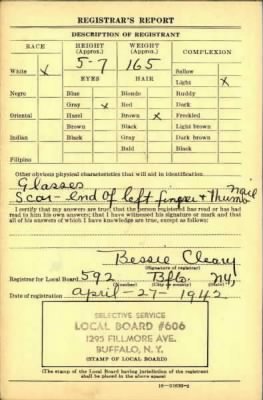 REGISTRAR'S REPORT
DESCRIPTION OF REGISTRANT
RACE HEIGHT (Approx.) WEIGHT (Approx.) COMPLEXION
5-7 165
White X Sallow
EYES HAIR Light X
Negro Blue Blonde Ruddy
Gray X Red Dark
Oriental Hazel Brown X Freckled
Brown Black Light brown
Indian Black Gray Dark brown
Bald Black
Filipino
Other obvious physical characteristics that will aid in identification
Glasses
Scar-end of left finger + thumb nail
I certify that my answers are true; that the person registered has read or has had
read to him his own answers; that I have witnessed his signature or mark and that
all of his answers of which I have knowledge are true, except as follows:
Bessie Cleary
(Signature of registrar)
Registrar for Local Board 592 Bflo. NY,
(Number) (City or county) (State)
Date of registration april-27-1942
SELECTIVE SERVICE
LOCAL BOARD #606
1295 FILLMORE AVE.
BUFFALO, N. Y.
(STAMP OF LOCAL BOARD)
(The stamp of the Local Board having jurisdiction of the registrant
shall be placed in the above space)